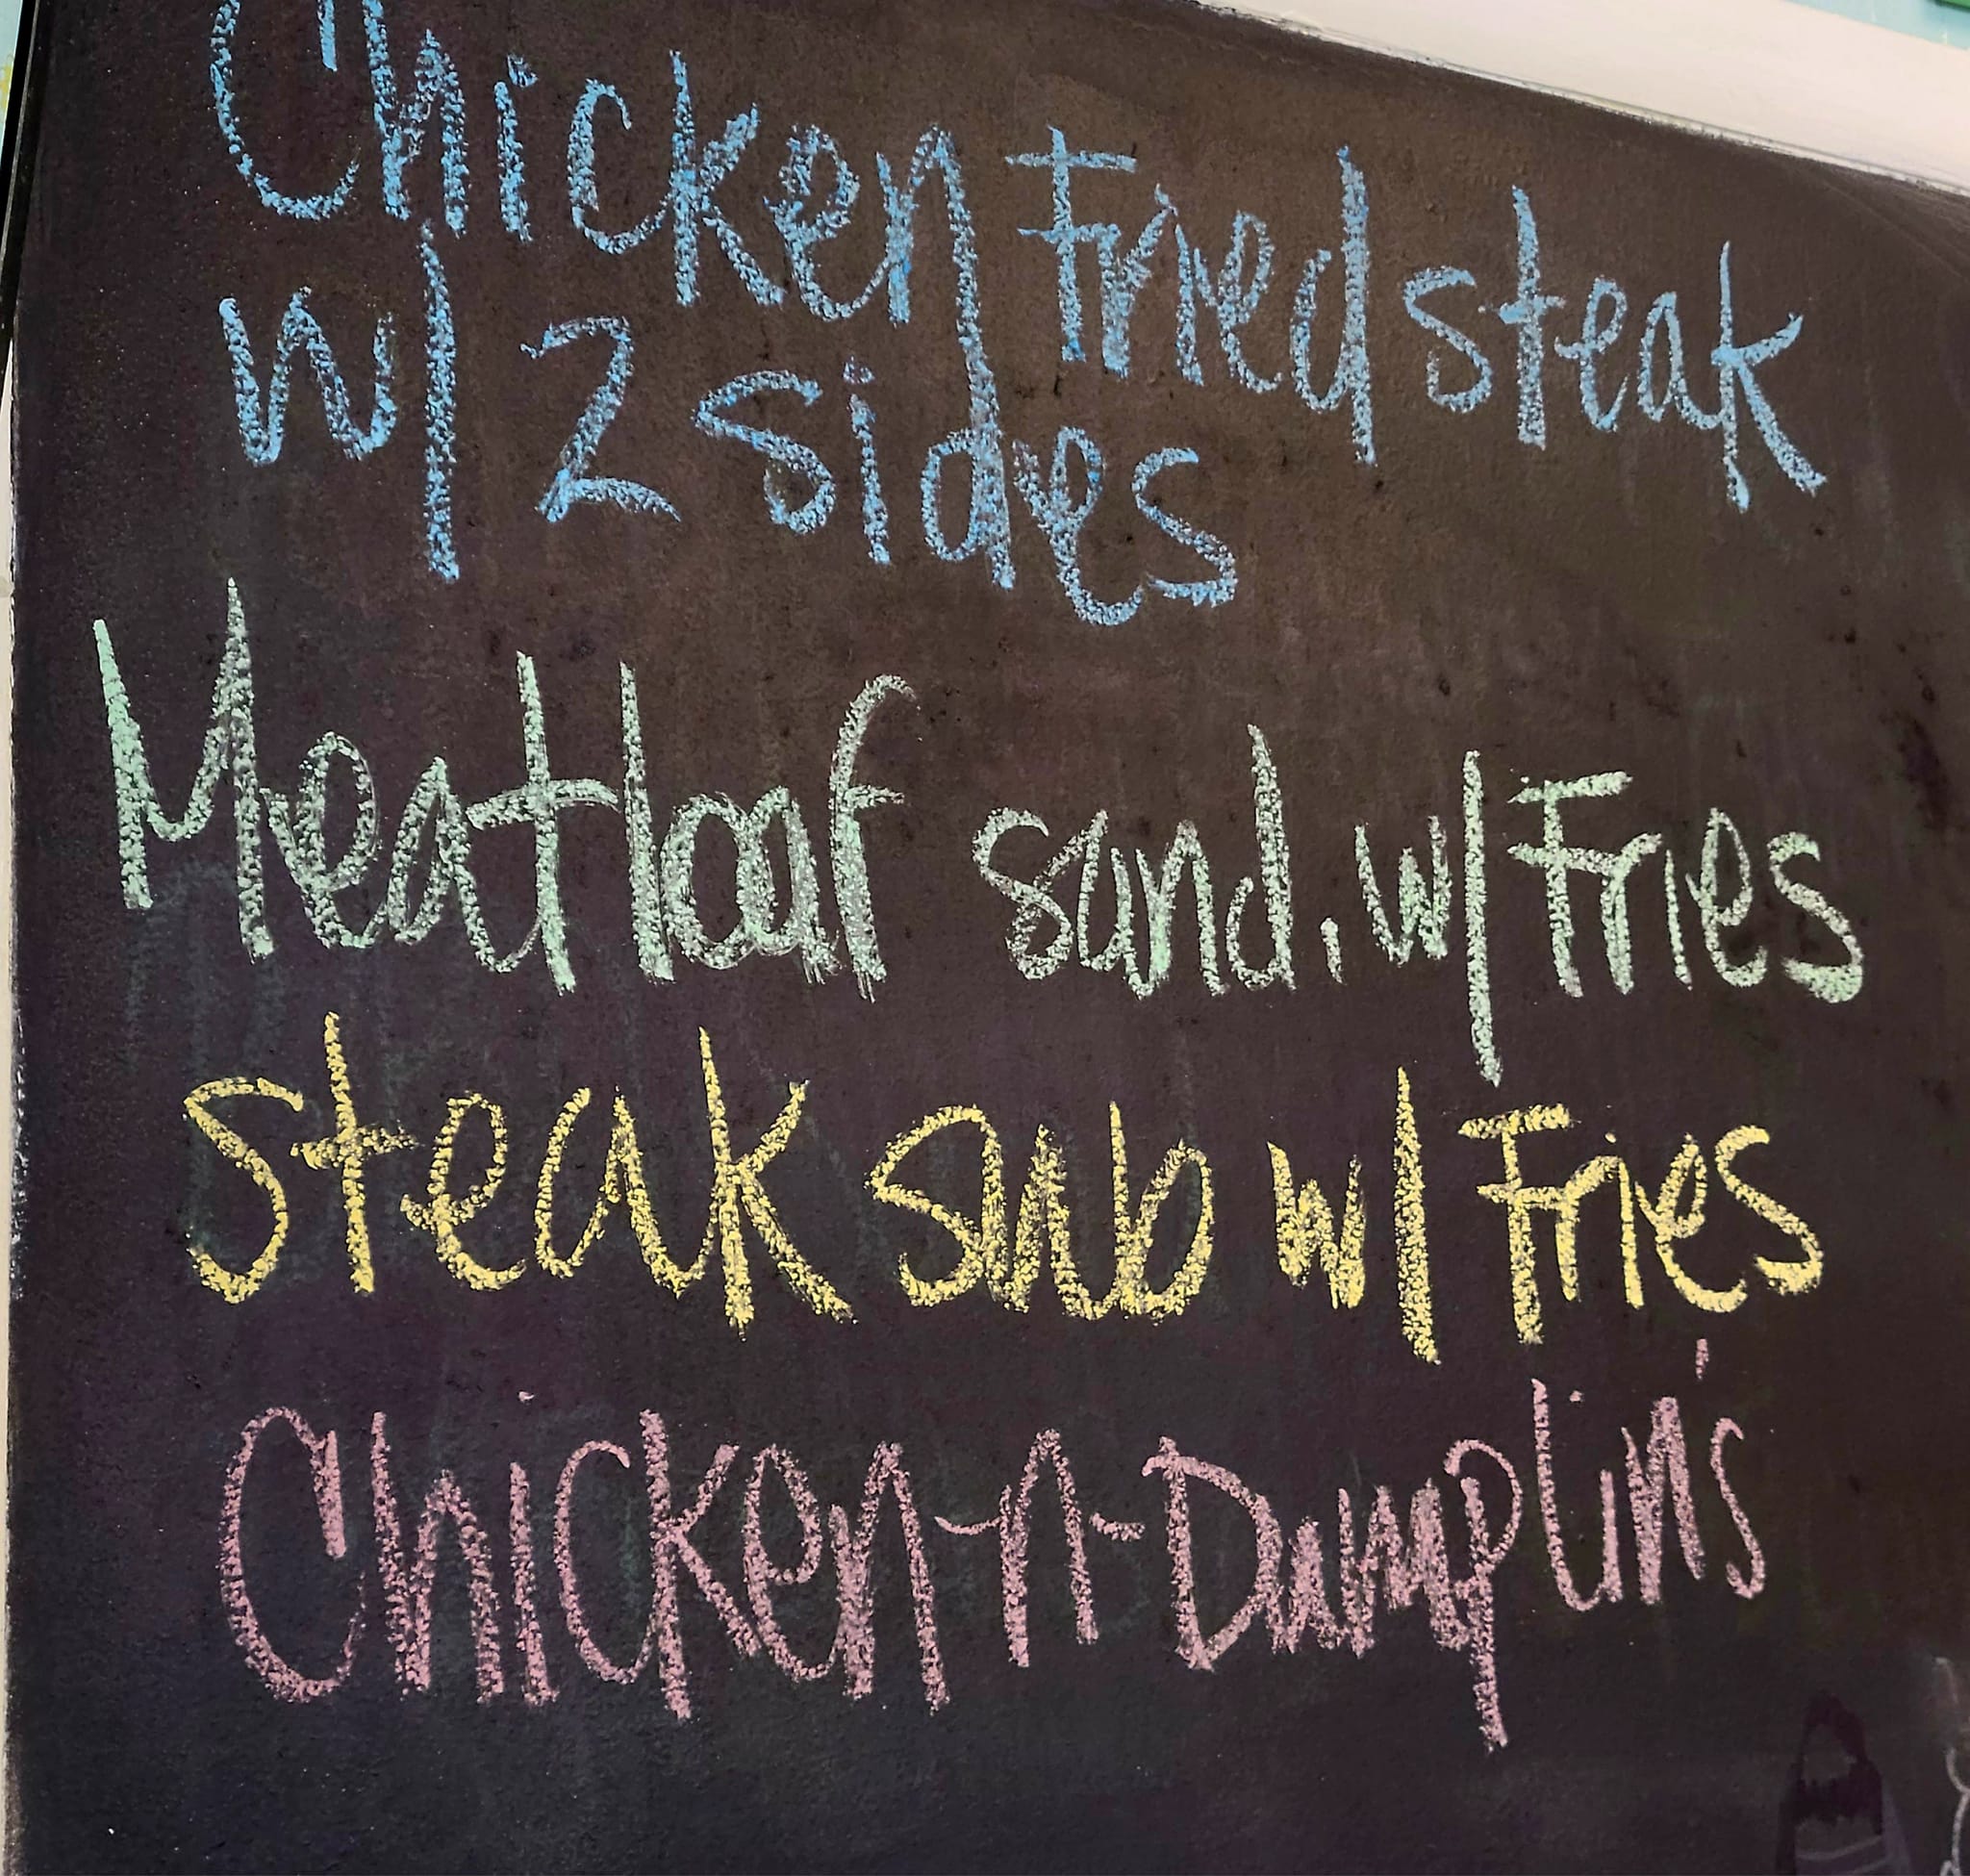 Chicken Fried steak
w/ 2 sides
Meatloaf sand. w/ Fries
steak sub w/ Fries
Chicken-n-Dumplin's